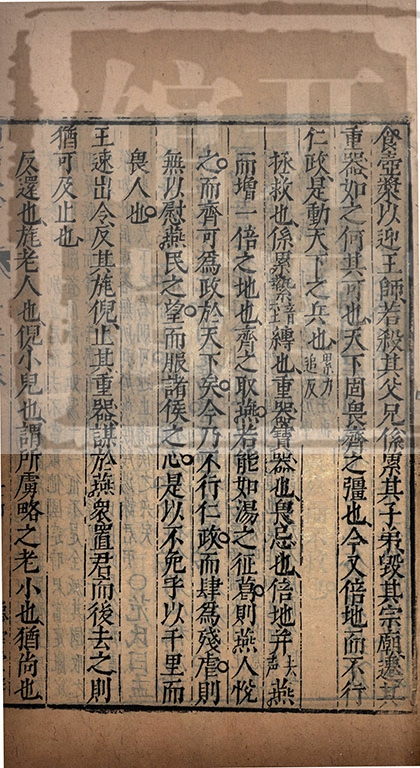 食壺漿以迎王師若殺其父兄係累其子弟毀其宗廟遷其
重器如之何其可也天下固畏齊之彊也今又倍地而不行
仁政是動天下之兵也累力追反
拯救也係累縶縛也重器寶器也畏忌也倍地并去聲燕
而增一倍之地也齊之取燕若能如湯之征葛則燕人悅
之而齊可為政於天下矣今乃不行仁政而肆為殘虐則
無以慰燕民之望而服諸侯之心是以不免乎以千里而
畏人也
王速出令反其旄倪止其重器謀於燕衆置君而後去之則
猶可及止也
反還也旄老人也倪小兒也謂所虜略之老小也猶尚也